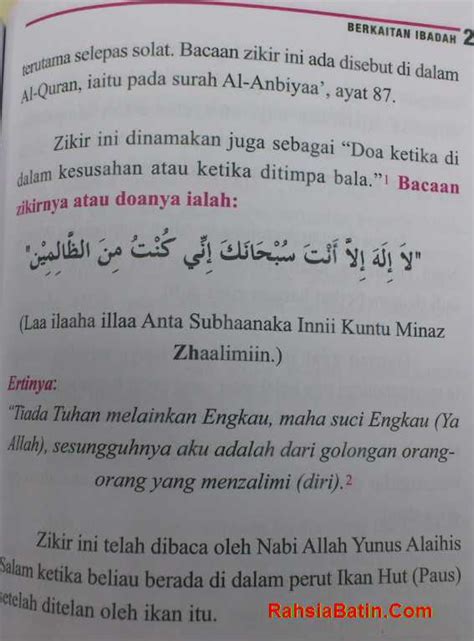 BERKAITAN IBADAH 2
terutama selepas solat. Bacaan zikir ini ada disebut di dalam
Al-Quran, iaitu pada surah Al-Anbiyaa', ayat 87.
Zikir ini dinamakan juga sebagai “Doa ketika di
dalam kesusahan atau ketika ditimpa bala.”1 Bacaan
zikirnya atau doanya ialah:
"لاَ إِلَهَ إِلاَّ أَنْتَ سُبْحَانَكَ إِنِّي كُنْتُ مِنَ الظَّالِمِيْنَ"
(Laa ilaaha illaa Anta Subhaanaka Innii Kuntu Minaz
Zhaalimiin.)
Ertinya:
“Tiada Tuhan melainkan Engkau, maha suci Engkau (Ya
Allah), sesungguhnya aku adalah dari golongan orang-
orang yang menzalimi (diri).2
Zikir ini telah dibaca oleh Nabi Allah Yunus Alaihis
Salam ketika beliau berada di dalam perut Ikan Hut (Paus)
setelah ditelan oleh ikan itu.
RahsiaBatin.Com